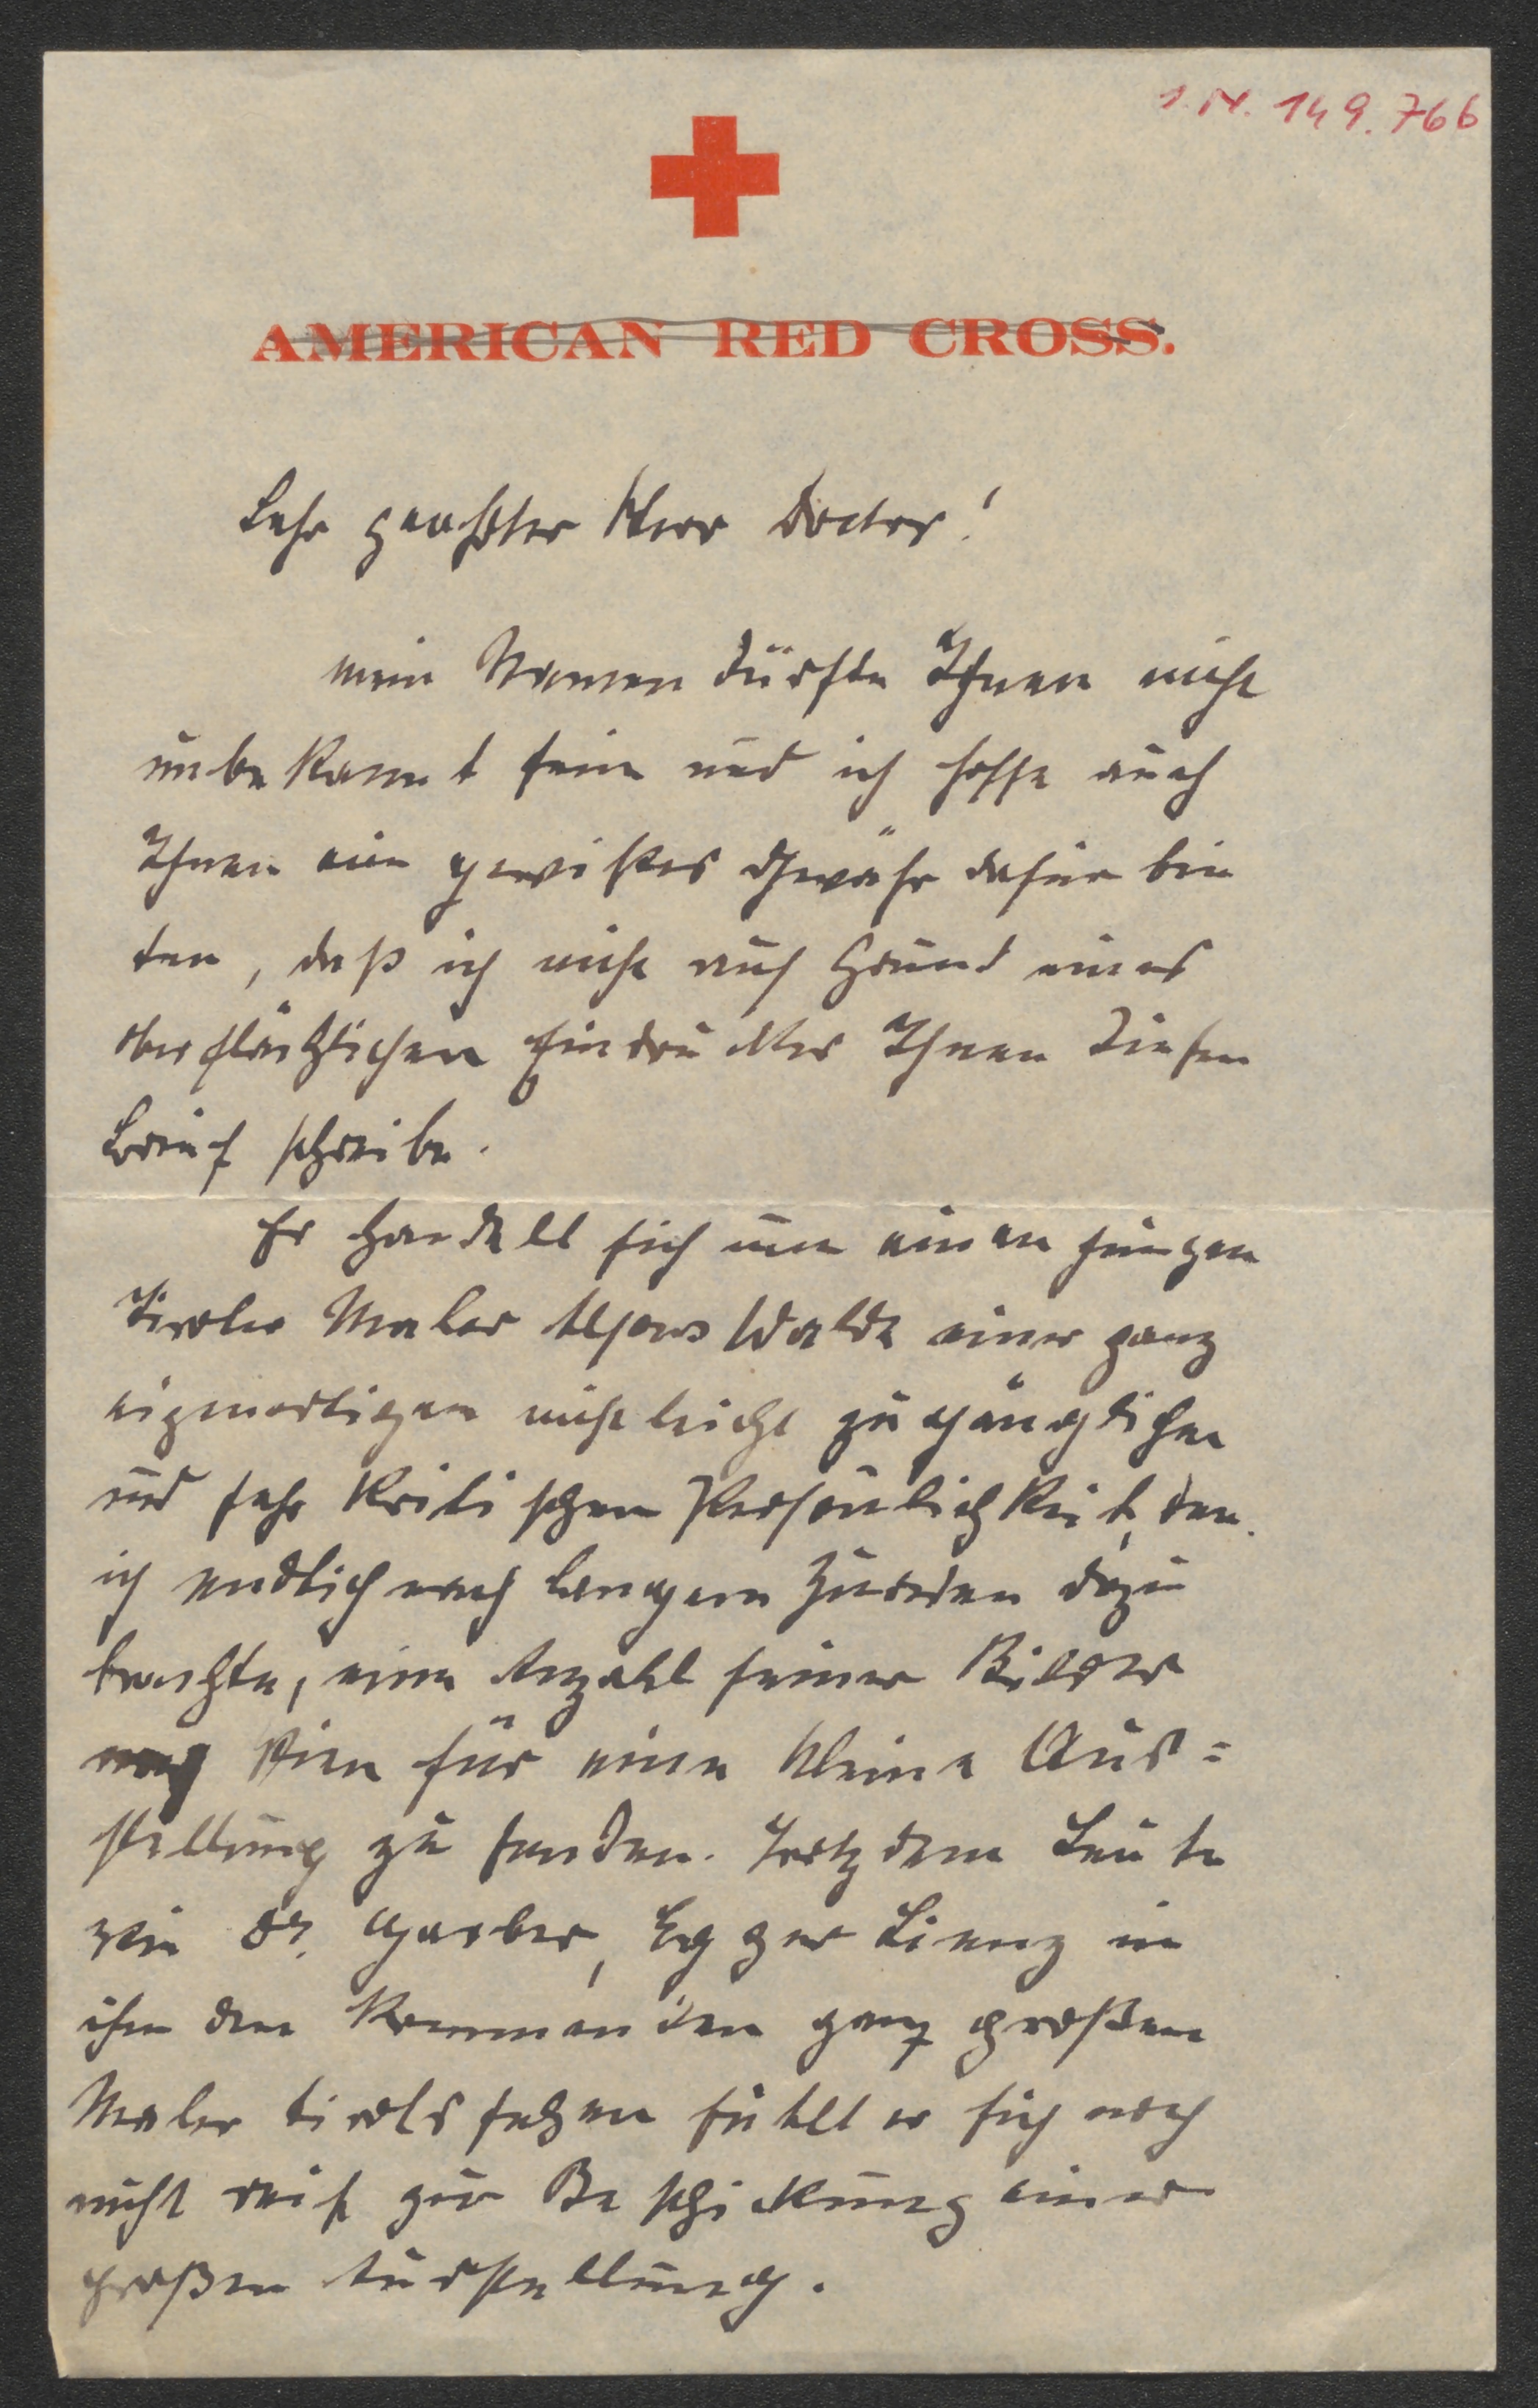 I.N. 149.766
AMERICAN RED CROSS.
Sehr geachteter Herr Doctor!
mein Namen dürfte Ihnen nicht
unbekannt sein und ich hoffe auch
Ihnen eine gewisses Gewähr dafür bie
ten, daß ich nicht auf Grund eines
oberflächlichen Eindruckes Ihnen diesen
Brief schreibe.
Es handelt sich um einen jungen
Tiroler Maler Alfons Walde einer ganz
eigenartigen nicht leicht zugänglichen
und sehr kritischen Persönlichkeit, den
ich endlich nach langem Zureden dazu
brachte, eine Anzahl seiner Bilder
nach Wien für eine kleine Aus=
stellung zu senden. Trotzdem Leute
wie Dr. Garber, Egger Lienz in
ihm den kommenden ganz großen
Maler Tirols sehen fühlt er sich noch
nicht reif zur Beschickung einer
großen Ausstellung.